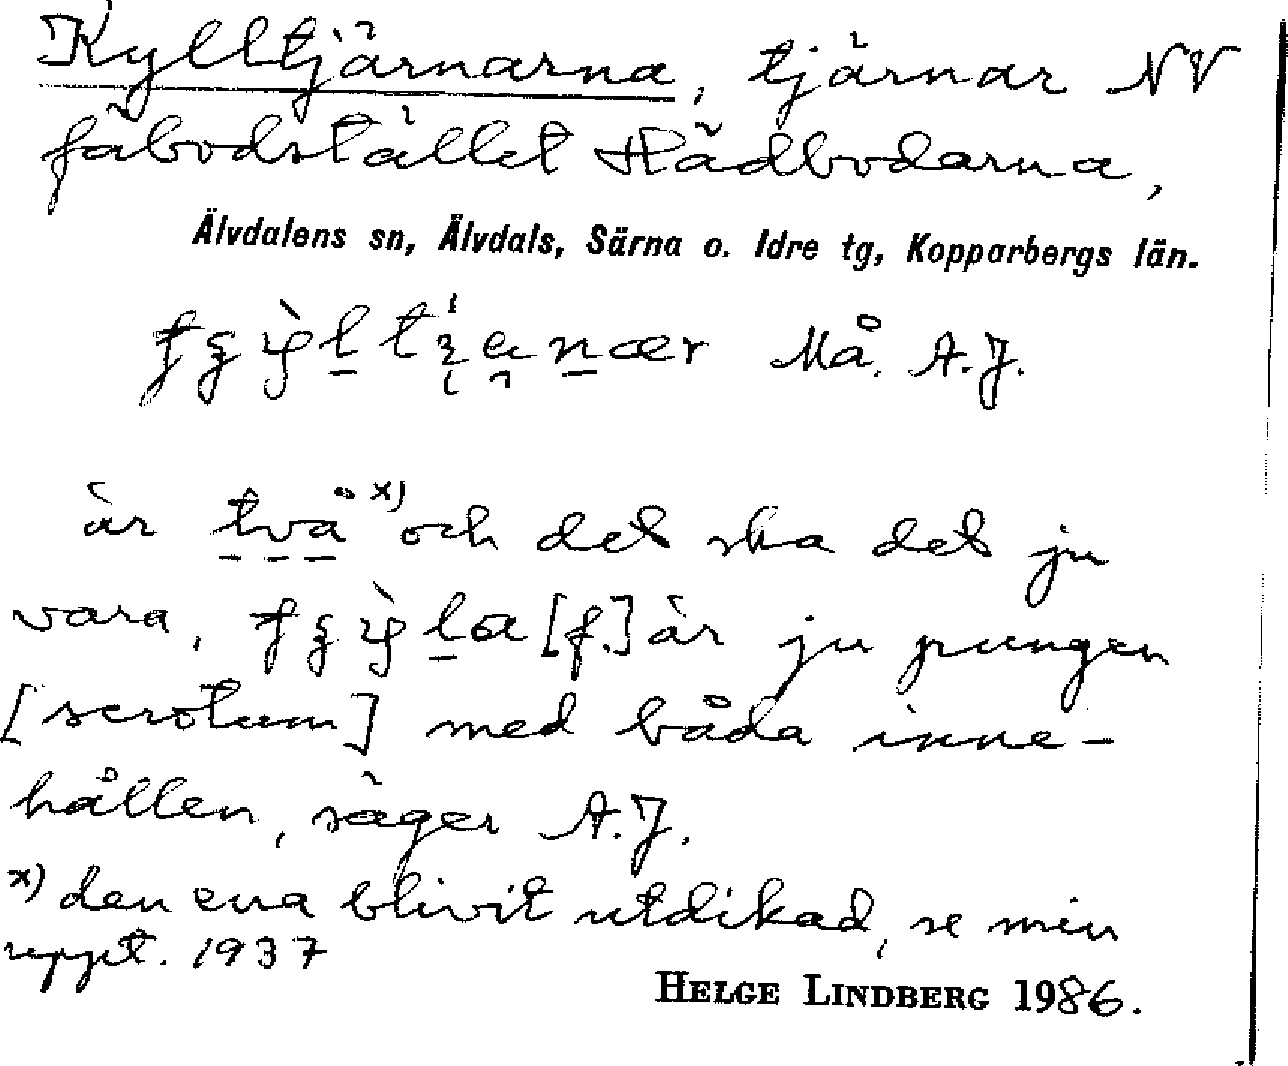 Kylltjärnarna, tjärnar NV
fäbodstället Hädbodarna,
Älvdalens sn, Älvdals, Särna o. Idre tg, Kopparbergs län.
Må. A.J.
är två x) och det ska det ju
vara, [f.] är ju pungen
[scrotum] med båda inne-
hållen, säger A.J.
x) den ena blivit utdikad, se min
uppt. 1937
HELGE LINDBERG 1986.